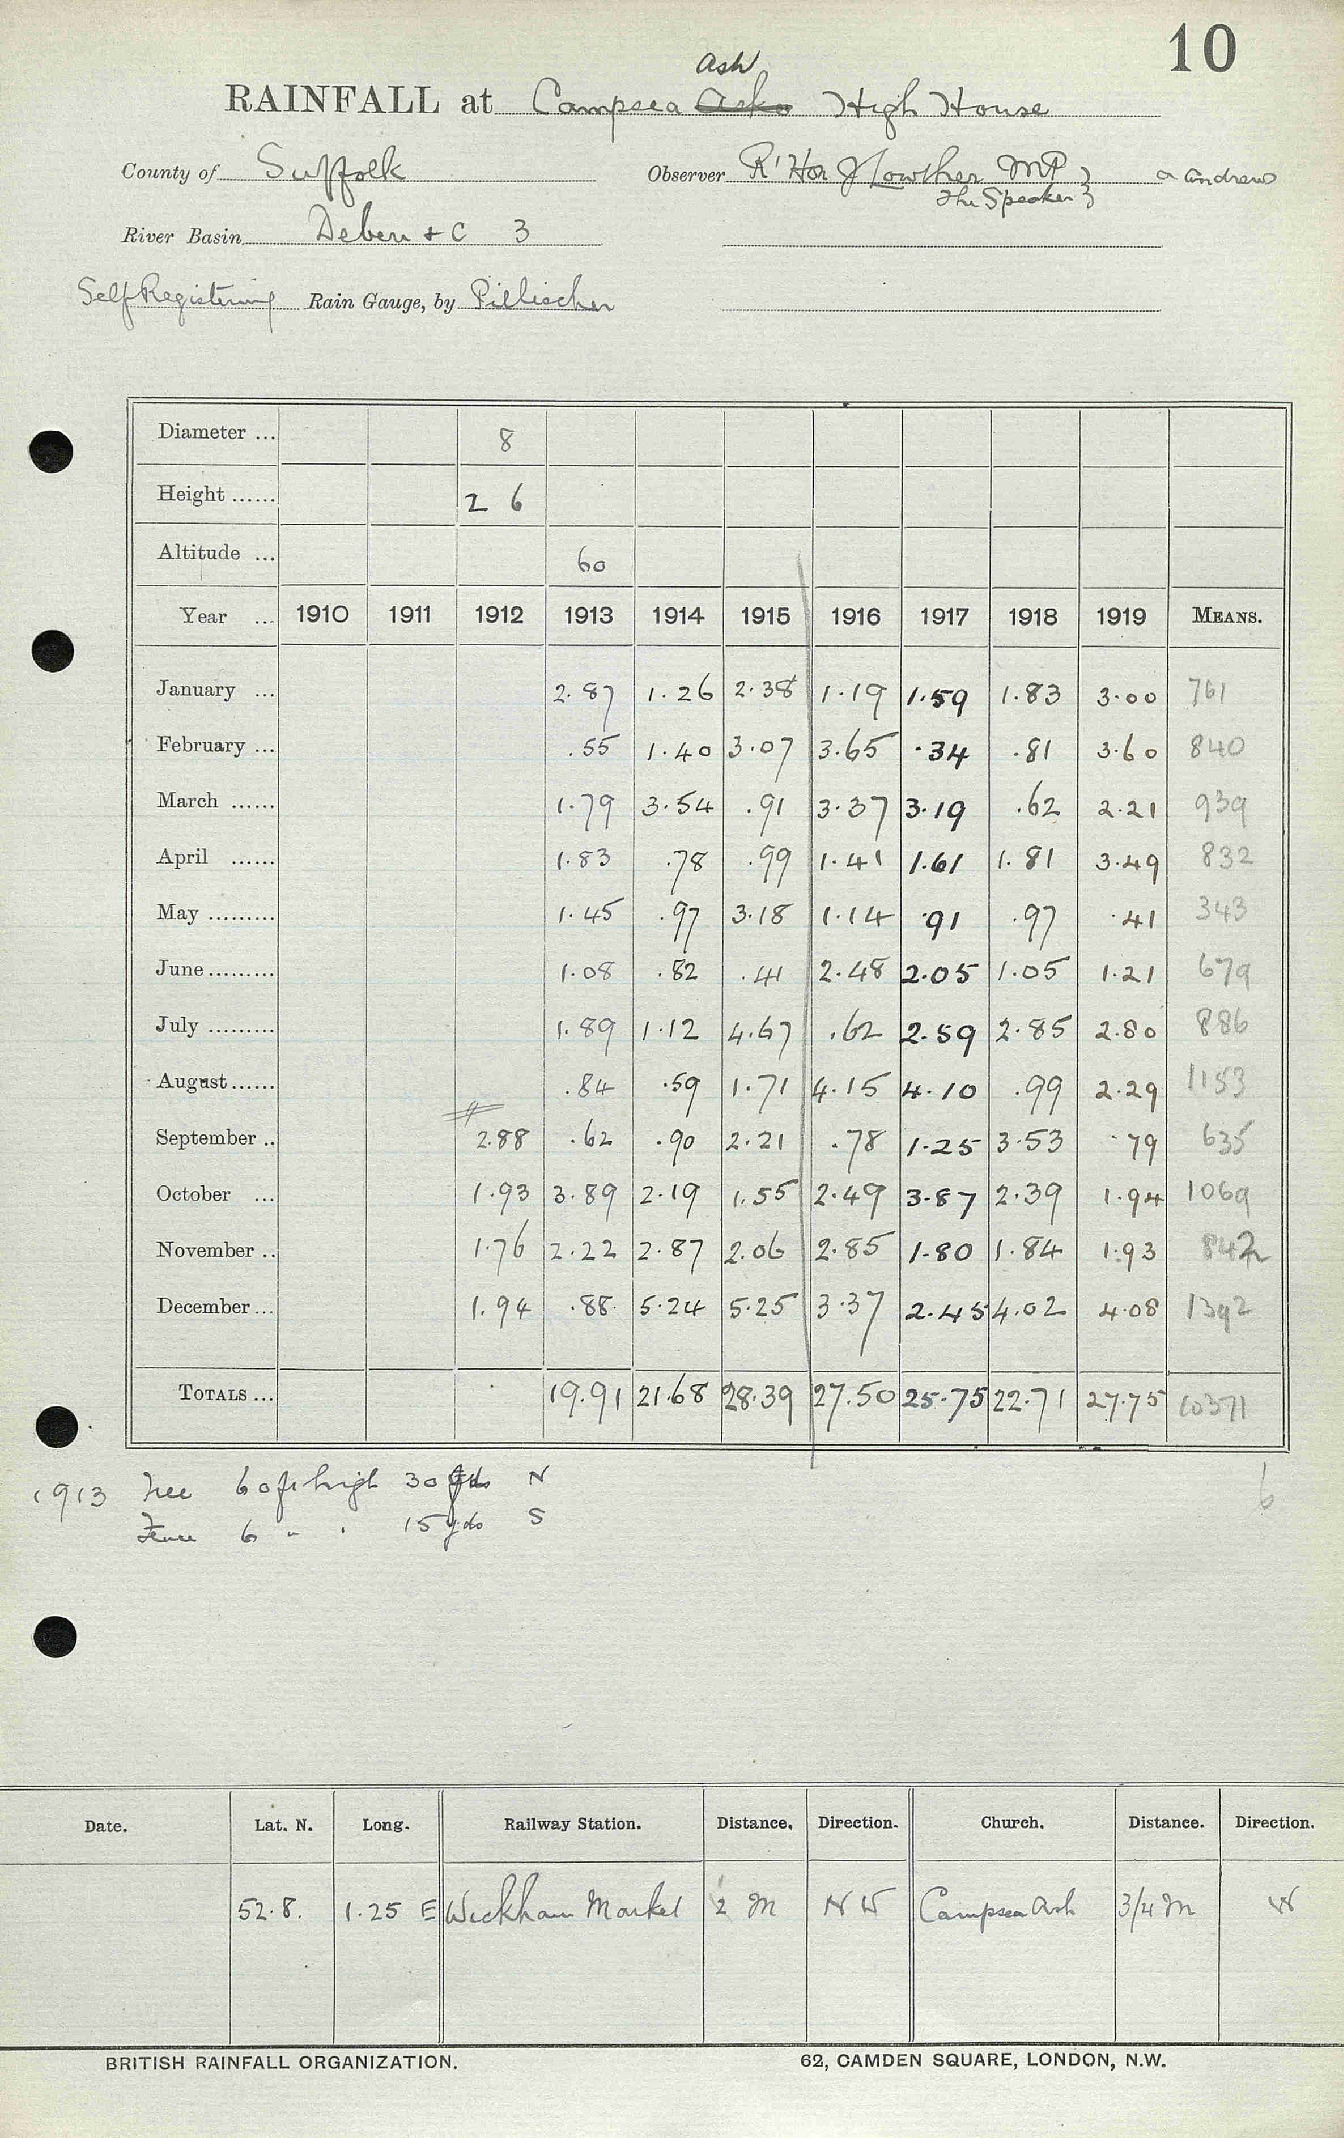 10
Ash
RAINFALL at Campsea Ashe High House
County of Suffolk Observer Rt Hon J Lowther MP } a Andrews
The Speaker }
River Basin Deben & C 3
Self Registering Rain Gauge, by Pillischer
Diameter ... 8
Height ...... 2 6
Altitude ... 60
Year ... 1910 1911 1912 1913 1914 1915 1916 1917 1918 1919 MEANS.
January ... 2.87 1.26 2.38 1.19 1.59 1.83 3.00 761
February ... .55 1.40 3.07 3.65 .34 .81 3.60 840
March ...... 1.79 3.54 .91 3.37 3.19 .62 2.21 939
April ...... 1.83 .78 .99 1.41 1.61 1.81 3.49 832
May ......... 1.45 .97 3.18 1.14 .91 .97 .41 343
June ......... 1.08 .82 .41 2.48 2.05 1.05 1.21 679
July ......... 1.89 1.12 4.67 .62 2.59 2.85 2.80 886
August ...... .84 .59 1.71 4.15 4.10 .99 2.29 1153
September .. 2.88 .62 .90 2.21 .78 1.25 3.53 .79 635
October ... 1.93 3.89 2.19 1.55 2.49 3.87 2.39 1.94 1069
November .. 1.76 2.22 2.87 2.06 2.85 1.80 1.84 1.93 842
December ... 1.94 .88 5.24 5.25 3.37 2.45 4.02 4.08 1392
TOTALS ... 19.91 21.68 28.39 27.50 25.75 22.71 27.75 10371
6
1913 Tree 60 ft high 30 yds N
Fence 6 " " 15 yds S
Date. Lat. N. Long. Railway Station. Distance. Direction. Church. Distance. Direction.
52.8. 1.25 E Wickham Market ½ M NW Campsea Ash 3/4 m W
BRITISH RAINFALL ORGANIZATION. 62, CAMDEN SQUARE, LONDON, N.W.